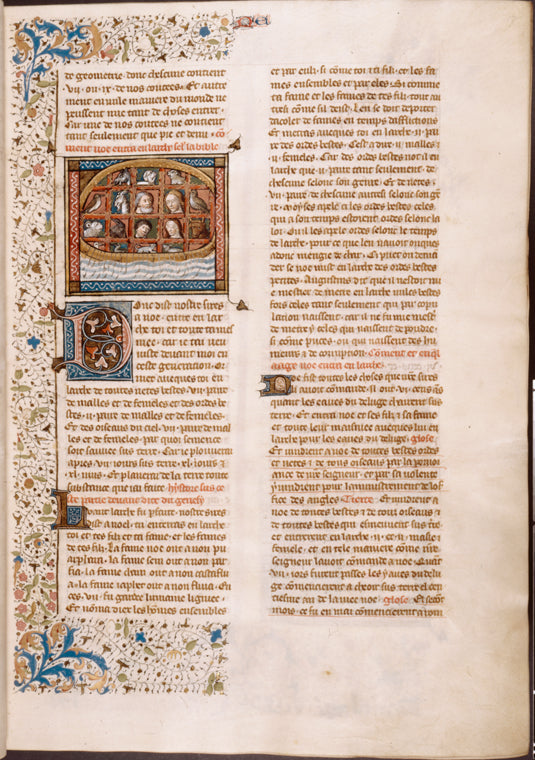 de geometrie donc chascune contient
vii. ou ix. de nos coutees. Et autre
ment en vile maniere du monde ne
peussent mie tant de choses entrer.
Car vne de nos coutees ne contient
tant seulement que pie et demi. co
ment noe entra en larche sel la bible
Donc dist nostre sires
a noe. entre en lar
che toi et toute ta mes
nie. car ie tai veu
iuste deuant moi en
ceste generation. Et
met auecques toi en
larche de toutes netes bestes. vii. paire
de malles et de femeles et des ordes be
stes. ii. paire de malles et de femeles.
Et des oisiaus du ciel. vii. paire de mal
les et de femeles. par quoi semence
soit sauuee sus terre. Car ie plouuerai
apres. vii. iours sus terre. xl. iours et
xl. nuis. Et planerai de la terre toute
substance que iai faite. hystoire sus ce
ste partie
En larche si
dist a noe. tu enterras en larche
toi et tes fils et ta fame. et les fames
de tes fils. La fame noe out a non pu
arphara. la fame sem out a non par
fia. la fame cham out a non
a. la fame iaphet out a non fliua. En
ces. viii. fu gardee humaine lignee.
Et nomma dieu les hommes ensembles
et par euls. si comme toi et ti fils. et les fa
mes ensembles et par eles. Si comme
ta fame et les fames de tes fils. tout au
tresi comme sil deist. Len se doit deporter
dacoler de fames en temps dafflictions
Et metras auecques toi en larche. ii. pai
re des ordes bestes. Cest a dire. ii. malles.
ii. femeles. Car des ordes bestes not il en
larche que. ii. paire tant seulement. de
chascune selonc son genre. Et de netes.
vii. paire de chascune autresi selonc son gen
re. moyses apele ci les ordes bestes celes
qui a son temps estoient ordes selonc la
loy. Ou il les apele ordes selonc le temps
de larche. pour ce que len nauoit onques
adonc mengie de char. Et puet on deman
der se noe mist en larche des ordes bestes
petites. Augustins dit que il nestoit mi
e mestier de metre en larche vules bestes
fors celes tant seulement qui par copu
lation naissent. car il ne fu mie mest
de metre y celes qui naissent de poudre.
si comme puces. ou qui naissent des hu
meurs et de corruption. Coment et en quel
aage noe entra en larche.
Noe fist toutes les choses que nostre sires
li auoit comande. si out. vi. cens ans
quant les eaues du deluge
terre. Et entra noe et ses fils et sa fame
et toute leur maisniee auecques lui en
larche pour les eaues du deluge. glose.
Et vindrent a noe de toutes bestes ordes
et netes et de tous oisiaus par la porue
ance de nostre seigneur. et par sa volente
vindrent pour lamministrement de lof
fice des angles. Tierte. Et vindrent a
noe de toutes bestes et de tous oisiaus et
de toutes bestes qui esmeuuent sus terre
et entrerent en larche. ii. et ii. masle et
femele. et en tele maniere comme nostre
seigneur lauoit comande a noe. Quant
vii. iors furent passes les eaues du delu
ge comencierent a cheoir sus terre el cen
tiesme an de la vie noe. glose. Et secont
mois. ce fu en mai comencierent a